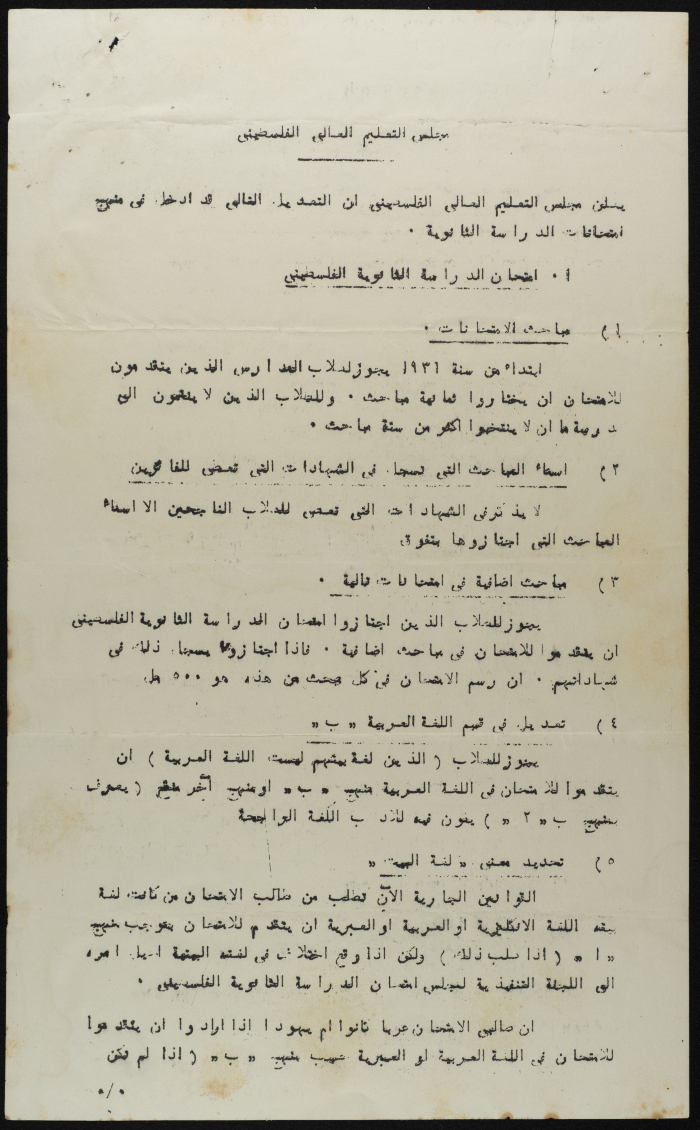 مجلس التعليم العالي الفلسطيني
يعلن مجلس التعليم العالي الفلسطيني ان التعديل التالي قد ادخل في منهج
امتحانات الدراسة الثانوية .
أ . امتحان الدراسة الثانوية الفلسطيني
١ ) مباحث الامتحانات .
ابتداء من سنة ١٩٣١ يجوز لطلاب المدارس الذين يتقدمون
للامتحان ان يختاروا ثمانية مباحث . وللطلاب الذين لا ينتمون الى
مدرسة ما ان لا ينتخبوا اكثر من ستة مباحث .
٢ ) اسماء المباحث التي تسجل في الشهادات التي تعطى للفائزين
لا يذكر في الشهادات التي تعطى للطلاب الناجحين الا اسماء
المباحث التي اجتازوها بتفوق
٣ ) مباحث اضافية في امتحانات تالية .
يجوز للطلاب الذين اجتازوا امتحان الدراسة الثانوية الفلسطيني
ان يتقدموا للامتحان في مباحث اضافية . فاذا اجتازوها يسجل ذلك في
شهاداتهم . ان رسم الامتحان في كل مبحث من هذه هو ٥٠٠ مل
٤ ) تعديل في قسم اللغة العربية " ب "
يجوز للطلاب ( الذين لغة بيتهم ليست اللغة العربية ) ان
يتقدموا للامتحان في اللغة العربية منهج " ب " او منهج آخر ( يعرف
بمنهج ب " ٢ " ) يكون فيه للادب اللغة الواضحة
٥ ) تحديد معنى " لغة البيت "
القوانين الجارية الآن تطلب من طالب الامتحان من كانت لغة
بيته اللغة الانكليزية او العربية او العبرية ان يتقدم للامتحان بموجب منهج
" ا " ( اذا طلب ذلك ) ولكن اذا وقع اختلاف في لغته البيتية احيل امره
الى اللجنة التنفيذية لمجلس امتحان الدراسة الثانوية الفلسطيني .
ان طالبي الامتحان عربا كانوا ام يهودا اذا ارادوا ان يتقدموا
للامتحان في اللغة العربية او العبرية حسب منهج " ب " ( اذا لم تكن
./.